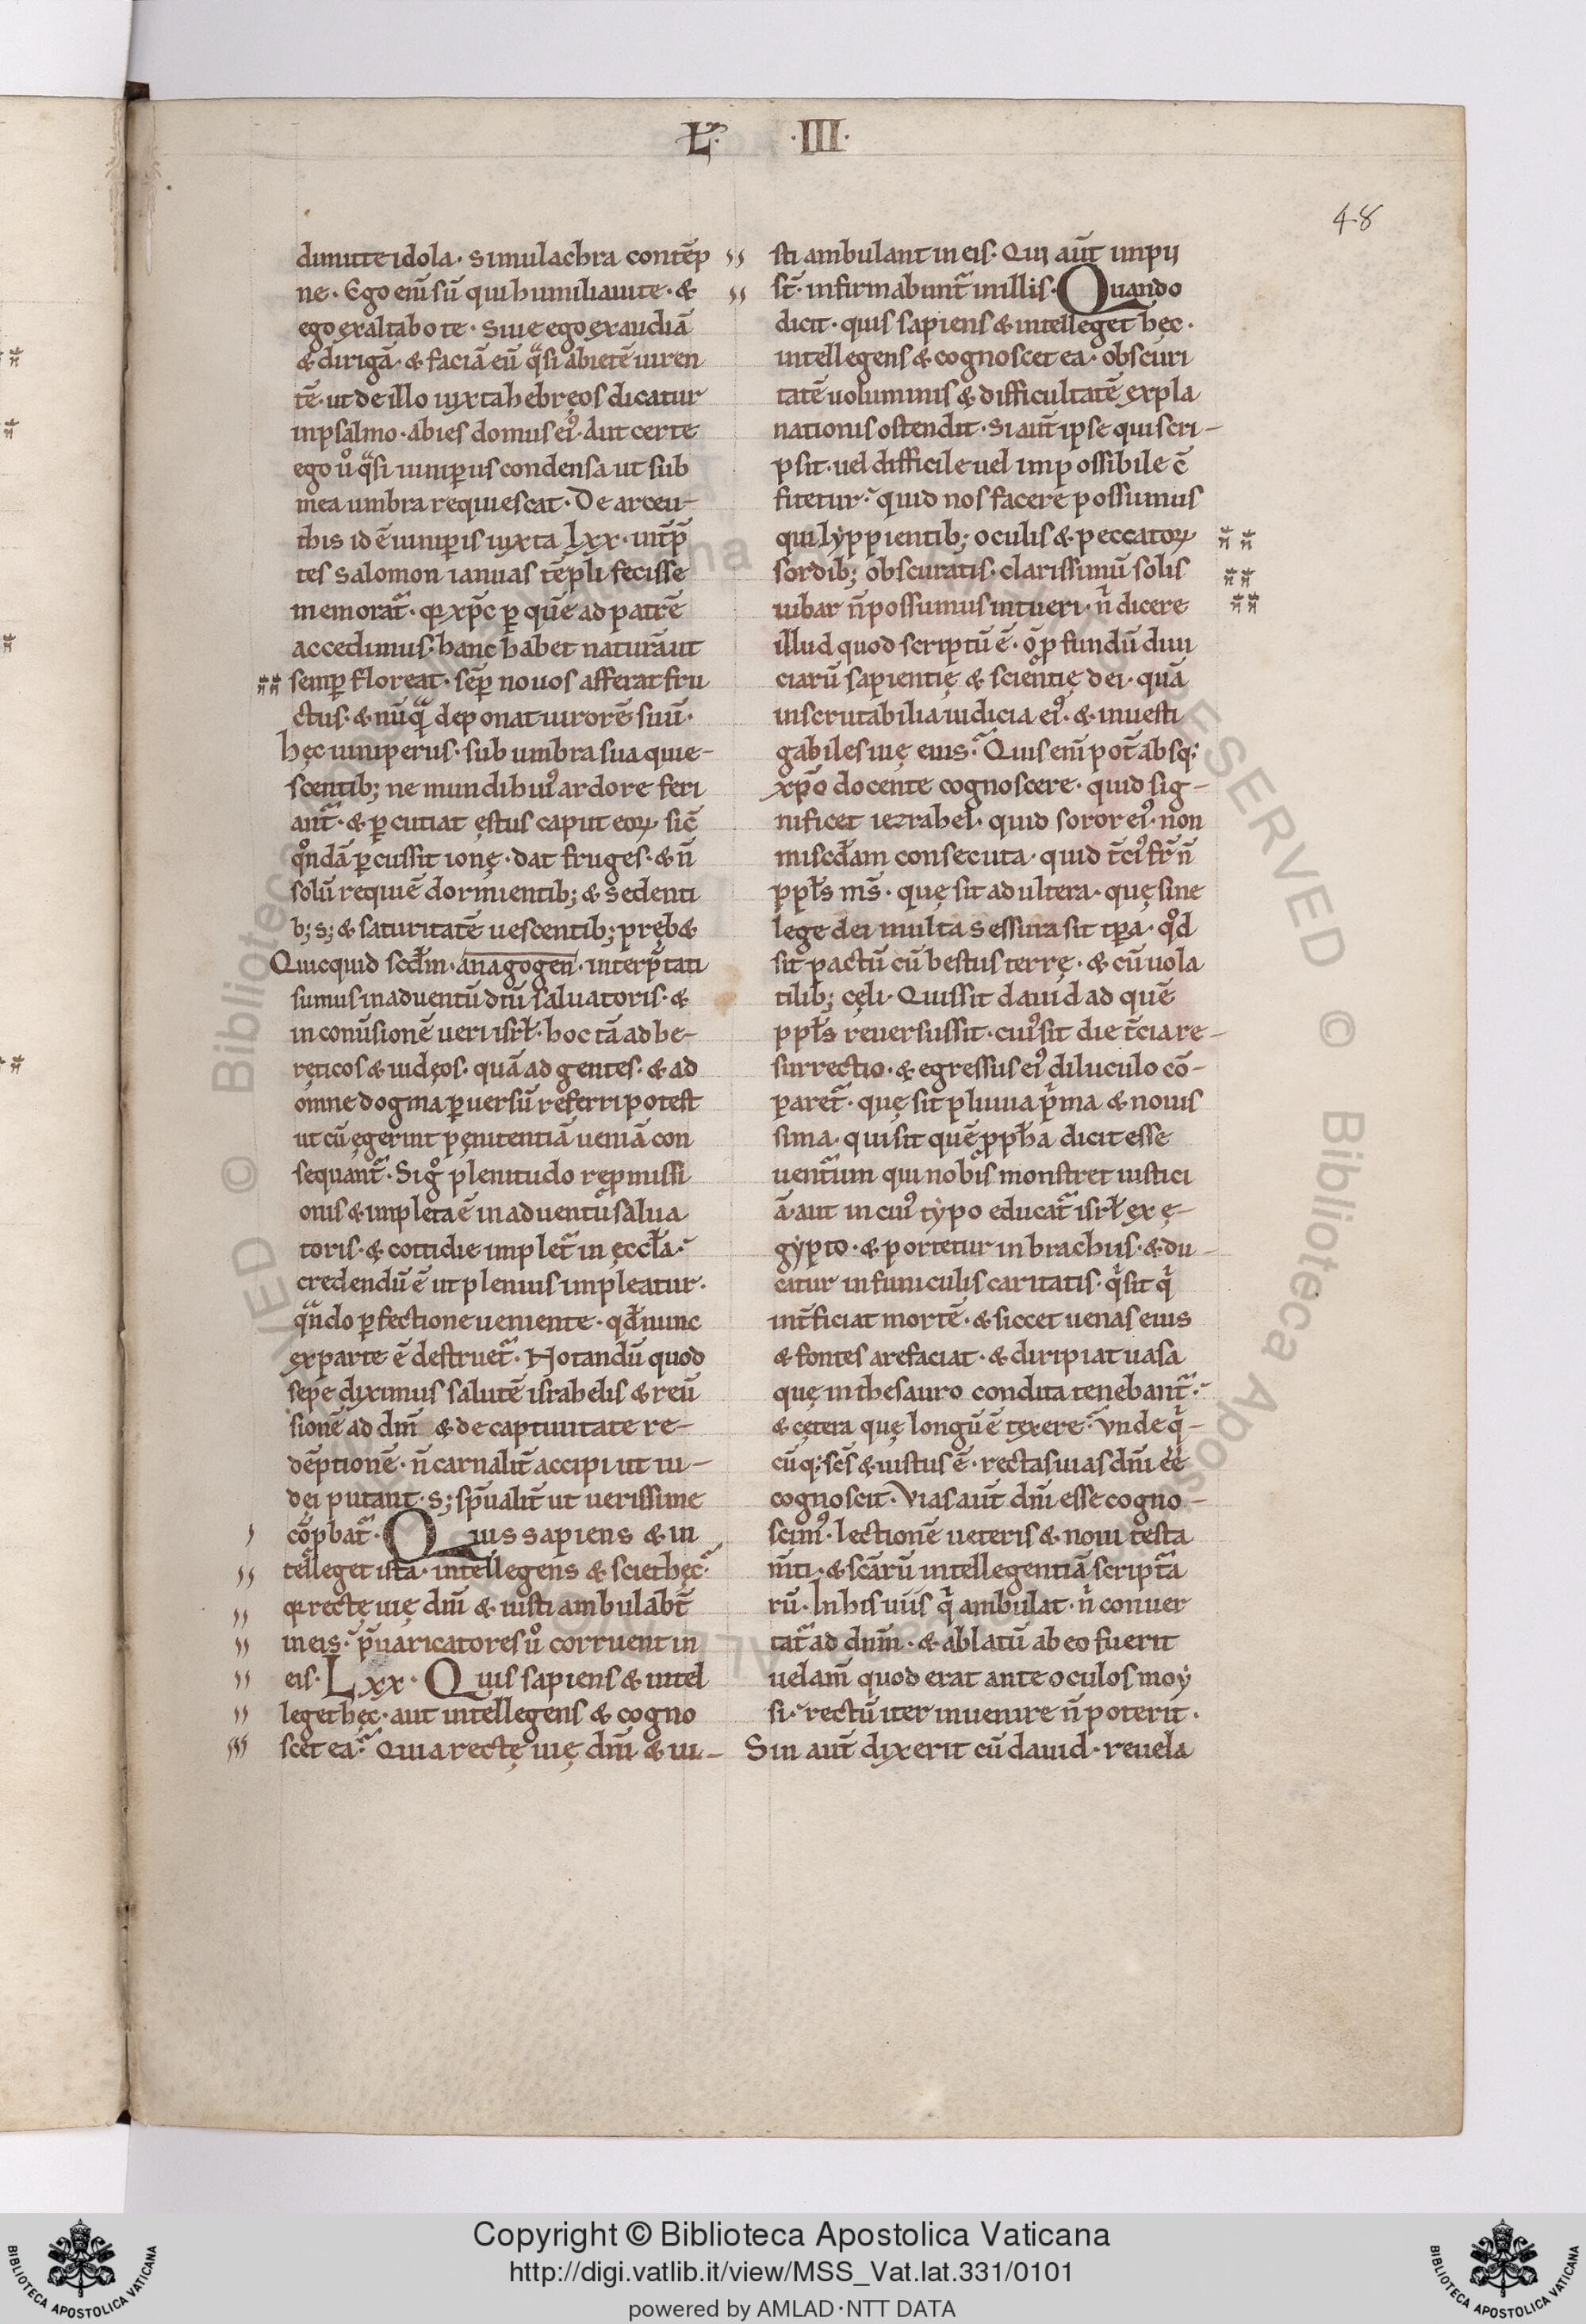 L͛. ·III·
48
dimitte idola· simulachra contēp
ne· Ego eni̅ su̅ qui humiliaui te· &
ego exaltabo te· siue ego exaudiā
& dirigā· & faciā eu̅ qͣsi abietē uiren
tē· ut de illo iuxta hebręos dicatur
in psalmo· abies domus eiꝰ· Aut certe
ego ů qͣsi iuniꝑus condensa ut sub
mea umbra requiescat· De arceu-
this id ē iuniꝑis iuxta lxx· int̅p̅
tes salomon ianuas tēpli fecisse
memorat᷑· quia xp̅c ꝑ quē ad patrē
accedimus· hanc habet naturā ut
semꝑ floreat· sēꝑ nouos afferat fru
ctus· & nūqͣ deponat uirorē suū·
hęc iuniperus· sub umbra sua quie-
scentib; ne mundi huiꝰ ardore feri
ant᷑· & ꝑcutiat ęstus caput eoꝝ sic̅
qͦndā ꝑcussit ionę· dat fruges· & n̅
solū requiē dormientib; & sedenti
b; s; & saturitatē uescentib; pręb&
Quicquid scd̅m· anagogen· interp̅tati
sumus in aduentū dn̅i saluatoris· &
in conu̅sionē ueri isrł· hoc tā ad he-
ręticos & iudęos· quā ad gentes· & ad
omne dogma ꝑuersū referri potest
ut cū ęgerint pęnitentiā ueniā con
sequant᷑· Sigͦ plenitudo repͦmissi
onis & impleta ē in aduentu saluа
toris· & cottidie implet᷑ in ęccła·
credendū ē ut plenius impleatur·
qͣndo ꝑfectione ueniente· qđ nunc
ex parte ē destruet᷑· Notandū quod
sepe diximus salutē israhelis & reu̅
sionē ad dn̅m & de captiuitate re-
dēptionē· n̅ carnalit̅ accipi ut iu-
dei putant· s; sp̅ualit̅ ut uerissime
cōpͦbat᷑· Quis sapiens & in
telleget ista· intellegens & sciet hęc·
quia rectę uię dn̅i & iusti ambulabt̅
in eis· p̅uaricatores ů corruent in
eis· Lxx· Quis sapiens & intel
leget hęc· aut intellegens & cogno
scet ea· Quia rectę uię dn̅i & iu-
sti ambulant in eis· Qui aut̅ impii
st̅· infirmabunt᷑ in illis· Quando
dicit· quis sapiens & intelleget hęc·
intellegens & cognoscet ea· obscuri
tatē uoluminis & difficultatē expla
nationis ostendit· Si aut̅ ipse qui scri-
psit· uel difficile uel impossibile ē
fitetur· quid nos facere possumus
qui lyppientib; oculis & peccatoꝝ
sordib; obscuratis· clarissimū solis
iubar n̅ possumus intueri· nͥ dicere
illud quod scriptū ē· o ꝓfundū diui
ciarū sapientię & scientię dei· quā
inscrutabilia iudicia eiꝰ· & inuesti
gabiles uię eius· Quis eni̅ pot̅ absq;
xp̅o docente cognoscere· quid sig-
nificet iezrahel· quid soror eiꝰ non
misc̅đam consecuta· quid t̅ciꝰ fr̅ n̅
ppłs ms̅· quę sit adultera· quę sine
lege dei multa sessura sit tꝑa· qͦd
sit pactū cū bestiis terrę· & cū uola
tilib; cęli· Quis sit dauid ad quē
ppłs reuersus sit· cuiꝰ sit die t̅cia re-
surrectio· & egressus eiꝰ diluculo cō-
paret᷑· quę sit pluuia pͥma & nouis
sima· qui sit quē ꝓpħa dicit esse
uent᷑um qui nobis monstret iustici
ā· aut in cuiꝰ typo educat᷑ isrł ex ę-
gypto· & portetur in brachiis· & du-
catur in funiculis caritatis· qͥ sit qͥ
int̅ficiat mortē· & siccet uenas eius
& fontes arefaciat· & diripiat uasa
quę in thesauro condita tenebant᷑·
& cętera quę longū ē texere· Vnde qͥ-
cū q; sc̅s & iustus ē· rectas uias dn̅i ee̅
cognoscit· Vias aut̅ dn̅i esse cogno-
scimꝰ· lectionē ueteris & noui testa
m̅ti· & sc̅arū intellegentiā script᷑a
rū· In his uiis qͥ ambulat· nͥ conuer
tat᷑ ad dn̅m· & ablatū ab eo fuerit
uelam̅ quod erat ante oculos moy
si· rectū iter inuenire n̅ poterit·
Sin aut̅ dixerit cū dauid· reuela
Copyright © Biblioteca Apostolica Vaticana
http://digi.vatlib.it/view/MSS_Vat.lat.331/0101
powered by AMLAD·NTT DATA
BIBLIOTECA APOSTOLICA VATICANA
BIBLIOTECA APOSTOLICA VATICANA